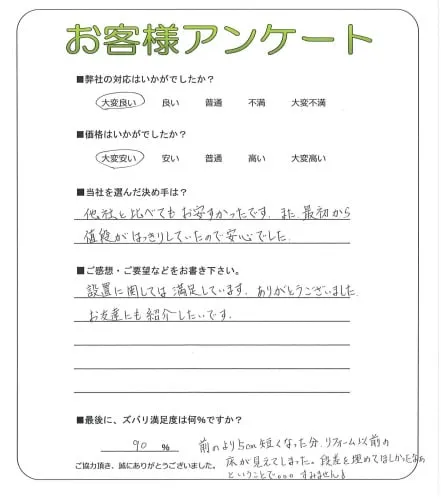 お客様アンケート
■弊社の対応はいかがでしたか?
大変良い 良い 普通 不満 大変不満
■価格はいかがでしたか?
大変安い 安い 普通 高い 大変高い
■当社を選んだ決め手は?
他社と比べてもお安すかったです。また、最初から
値段がはっきりしていたので安心でした。
■ご感想・ご要望などをお書き下さい。
設置に関しては満足しています。ありがとうございました。
お友達にも紹介したいです。
■最後に、ズバリ満足度は何%ですか?
90 % 前のより5cm短くなった分、リフォーム以前の
床が見えてしまった。段差を埋めてほしかったなぁ
ご協力頂き、誠にありがとうございました。 ということで。。。すみません!